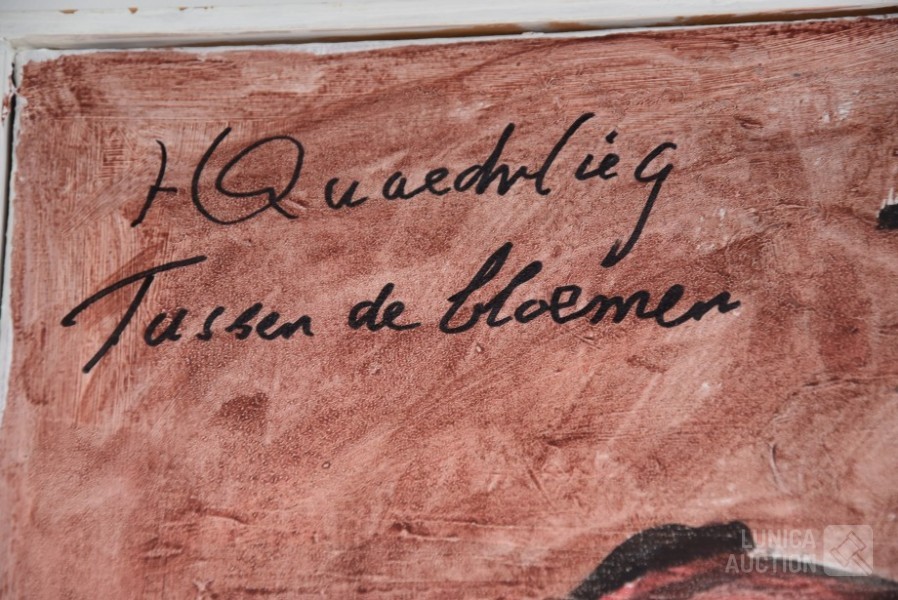 HQuaedvlieg
Tussen de bloemen
LUNICA
AUCTION